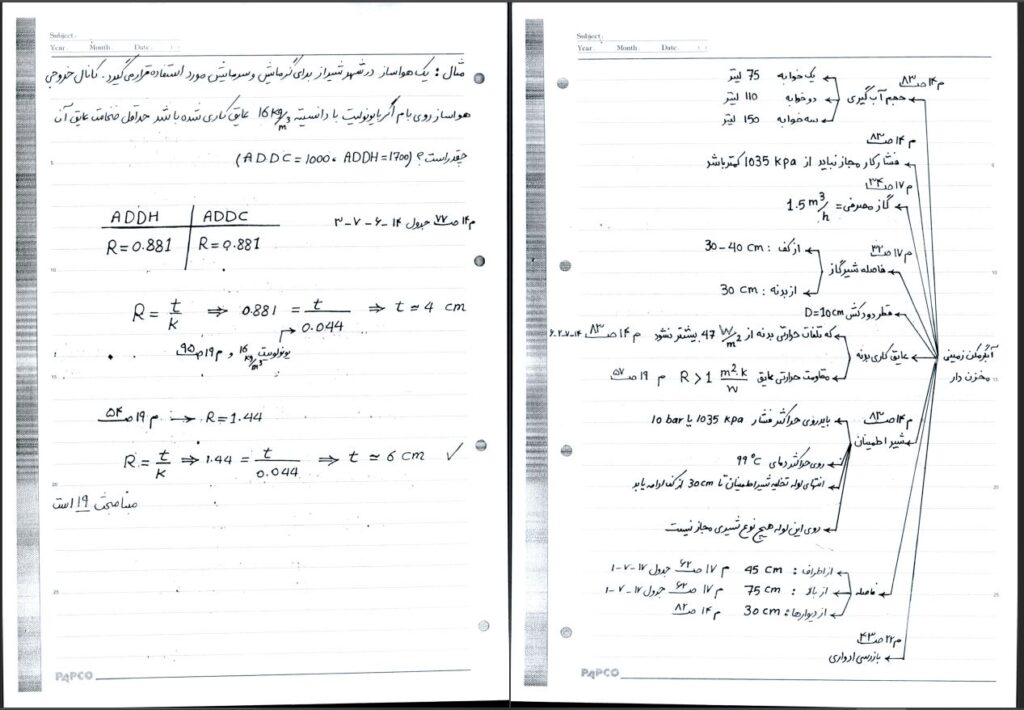 Subject:
Year. Month. Date. ( )
مثال : یک هواساز در شهر شیراز برای گرمایش و سرمایش مورد استفاده قرار می گیرد. کانال خروجی
هواساز روی بام اگر با یونولیت با دانسیته 16 kg/m³ عایق کاری شده باشد حداقل ضخامت عایق آن
چقدر است؟ (ADDC = 1000 ، ADDH = 1700)
م ۱۴ ص ۷۷ جدول ۱۴-۶-۷-۳
ADDH | ADDC
R = 0.881 | R = 0.881
R = t/k ⇒ 0.881 = t/0.044 ⇒ t ≃ 4 cm
یونولیت 16 kg/m³ و م ۱۹ ص ۹۵
م ۱۹ ص ۵۴ → R = 1.44
R = t/k ⇒ 1.44 = t/0.044 ⇒ t ≃ 6 cm ✓
مبنا مبحث ۱۹ است
PAPCO
Subject:
Year. Month. Date. ( )
آبگرمکن زمینی
مخزن دار
م ۱۴ ص ۸۳
حجم آب گیری
یک خوابه 75 لیتر
دو خوابه 110 لیتر
سه خوابه 150 لیتر
م ۱۴ ص ۸۳
فشار کار مجاز نباید از 1035 kpa کمتر باشد
م ۱۷ ص ۳۴
گاز مصرفی = 1.5 m³/h
م ۱۷ ص ۳۲
فاصله شیر گاز
از کف : 30-40 cm
از بدنه : 30 cm
قطر دودکش D=10cm
عایق کاری بدنه
که تلفات حرارتی بدنه از 47 W/m² بیشتر نشود م ۱۴ ص ۸۳ ۱۴-۷-۲-۶
مقاومت حرارتی عایق R > 1 m².k/W م ۱۹ ص ۵۷
م ۱۴ ص ۸۳
شیر اطمینان
باید روی حداکثر فشار 1035 kpa یا 10 bar
روی حداکثر دمای 99°C
انتهای لوله تخلیه شیر اطمینان تا 30 cm از کف ادامه یابد
روی این لوله هیچ نوع شیری مجاز نیست
فاصله
از اطراف : 45 cm م ۱۷ ص ۶۲ جدول ۱۷-۷-۱
از بالا : 75 cm م ۱۷ ص ۶۲ جدول ۱۷-۷-۱
از دیوارها : 30 cm م ۱۴ ص ۸۲
م ۲۲ ص ۴۳
بازرسی ادواری
PAPCO